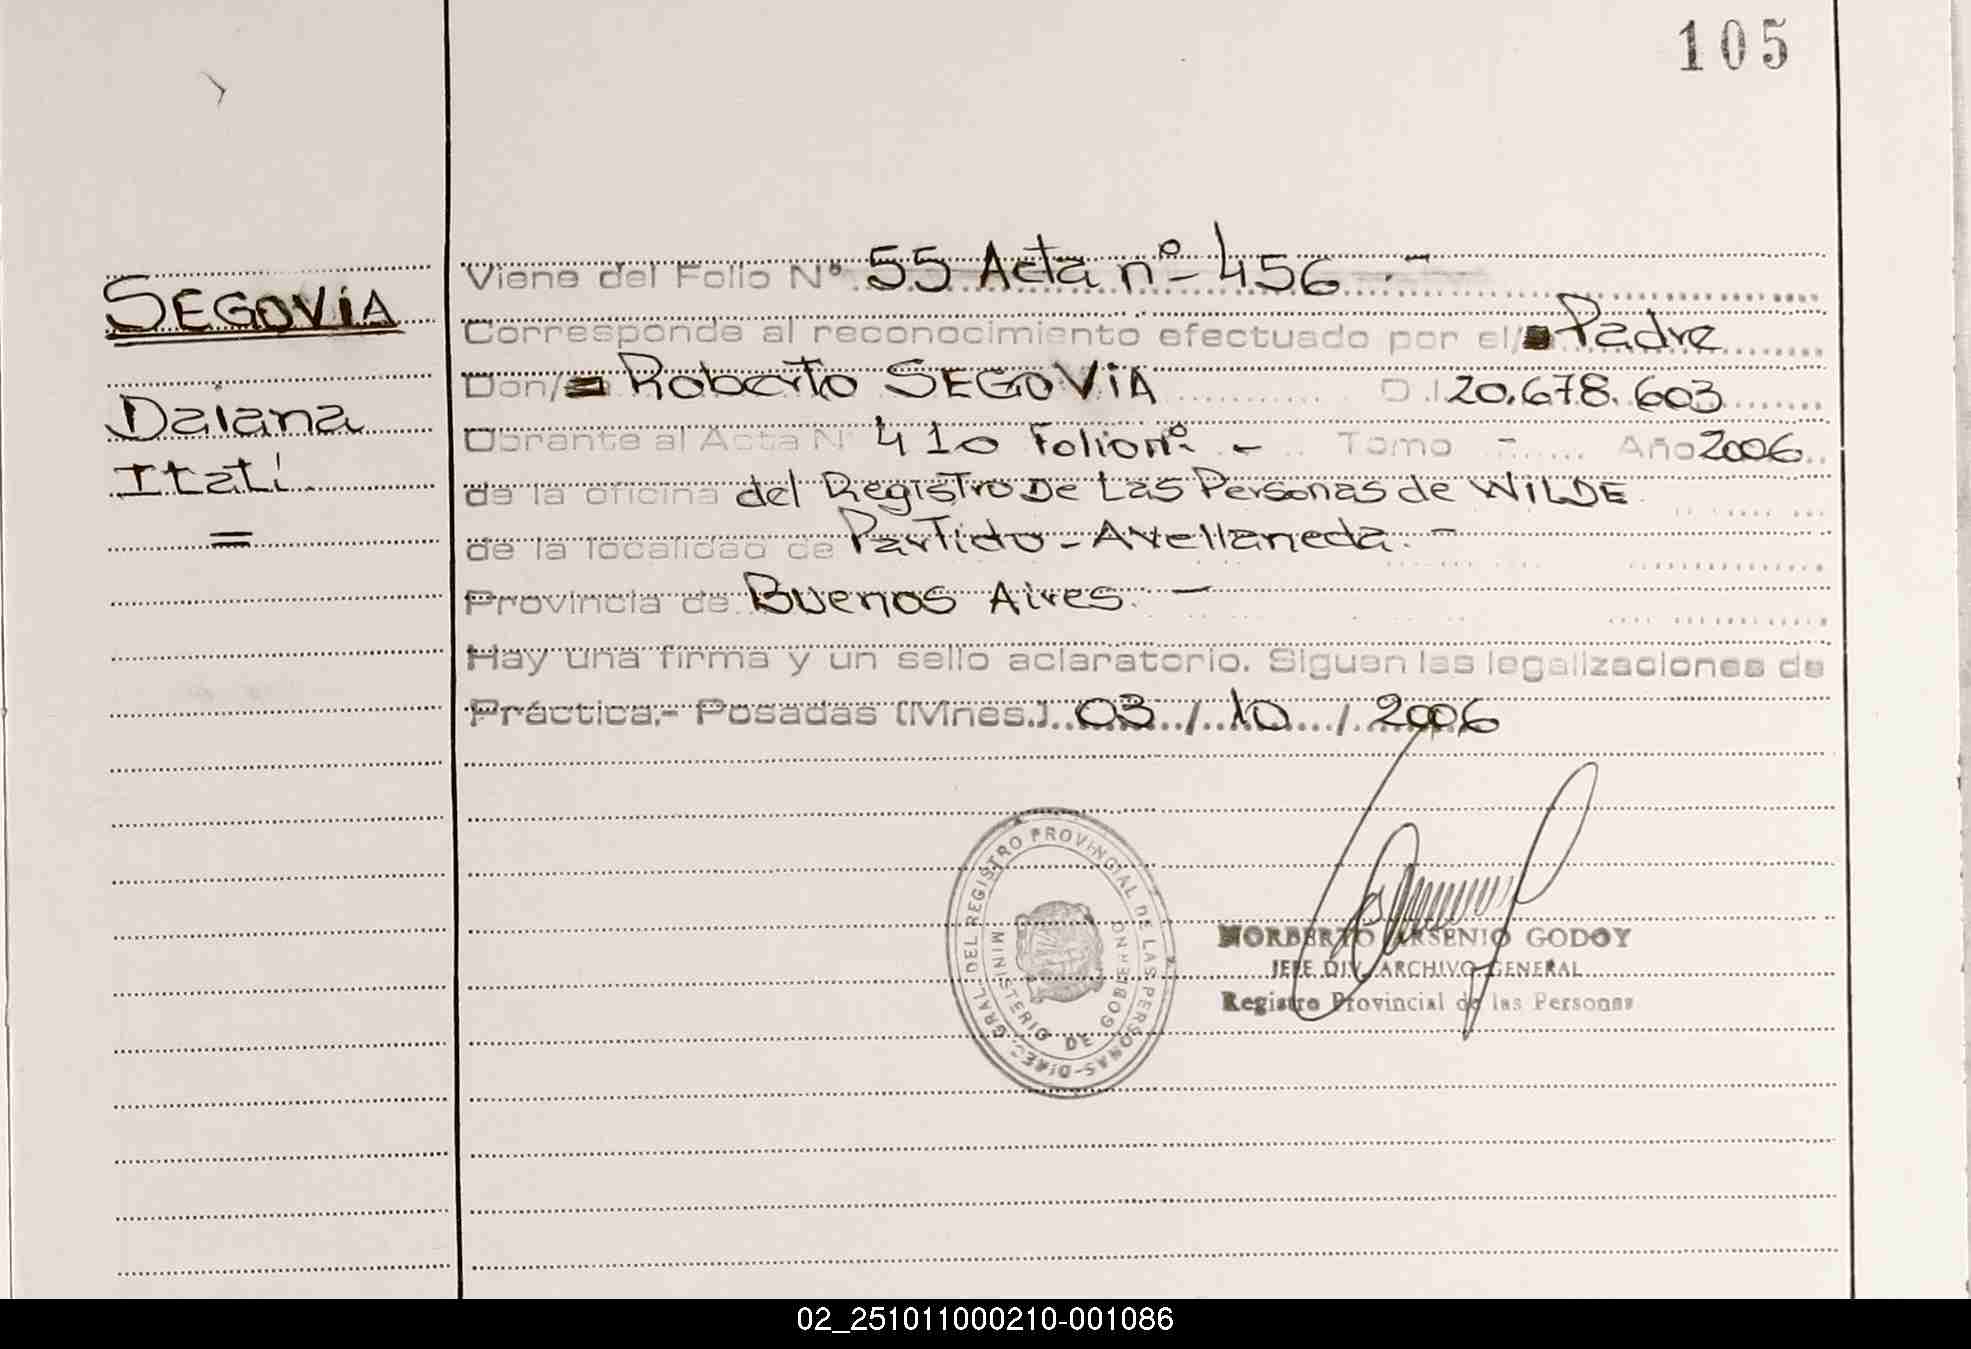 105
SEGOVIA
Daiana
Itatí
=
Viene del Folio Nº 55 Acta nº - 456 -
Corresponde al reconocimiento efectuado por el/ Padre
Don/ Roberto SEGOVIA D.I. 20.678.603
Obrante al Acta Nº 410 Folio nº - Tomo - Año 2006
de la oficina del Registro De Las Personas de WILDE
de la localidad de Partido - Avellaneda. -
Provincia de Buenos Aires. -
Hay una firma y un sello aclaratorio. Siguen las legalizaciones de
Práctica.- Posadas (Mnes.) 03 / 10 / 2006
DIREC. GRAL. DEL REGISTRO PROVINCIAL DE LAS PERSONAS -
MINISTERIO DE GOBIERNO
NORBERTO ARSENIO GODOY
JEFE DIV. ARCHIVO GENERAL
Registro Provincial de las Personas
02_251011000210-001086